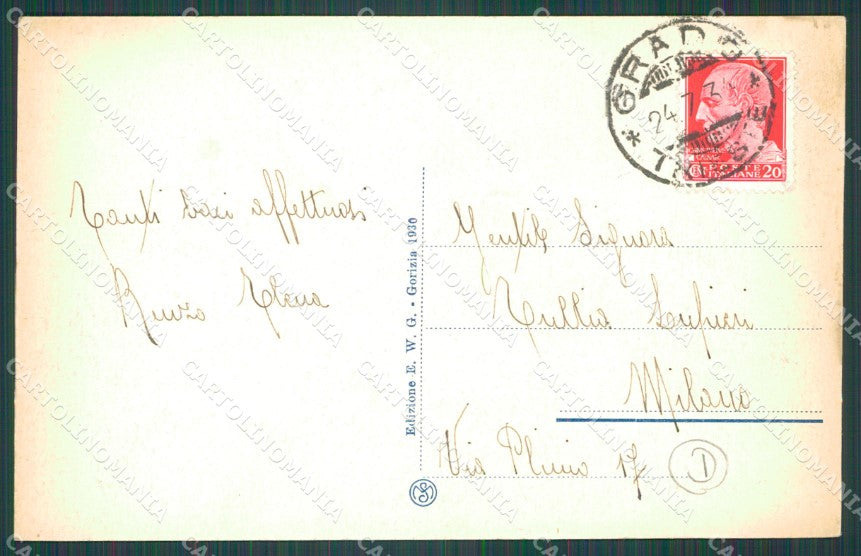 GRADO
24.7.3
POSTE ITALIANE 20
Tanti baci affettuosi
Renzo Elena
Edizione E. W. G. - Gorizia 1930
Gentile Signora
Tullia
Milano
Via Plinio 17
CARTOLINOMANIA